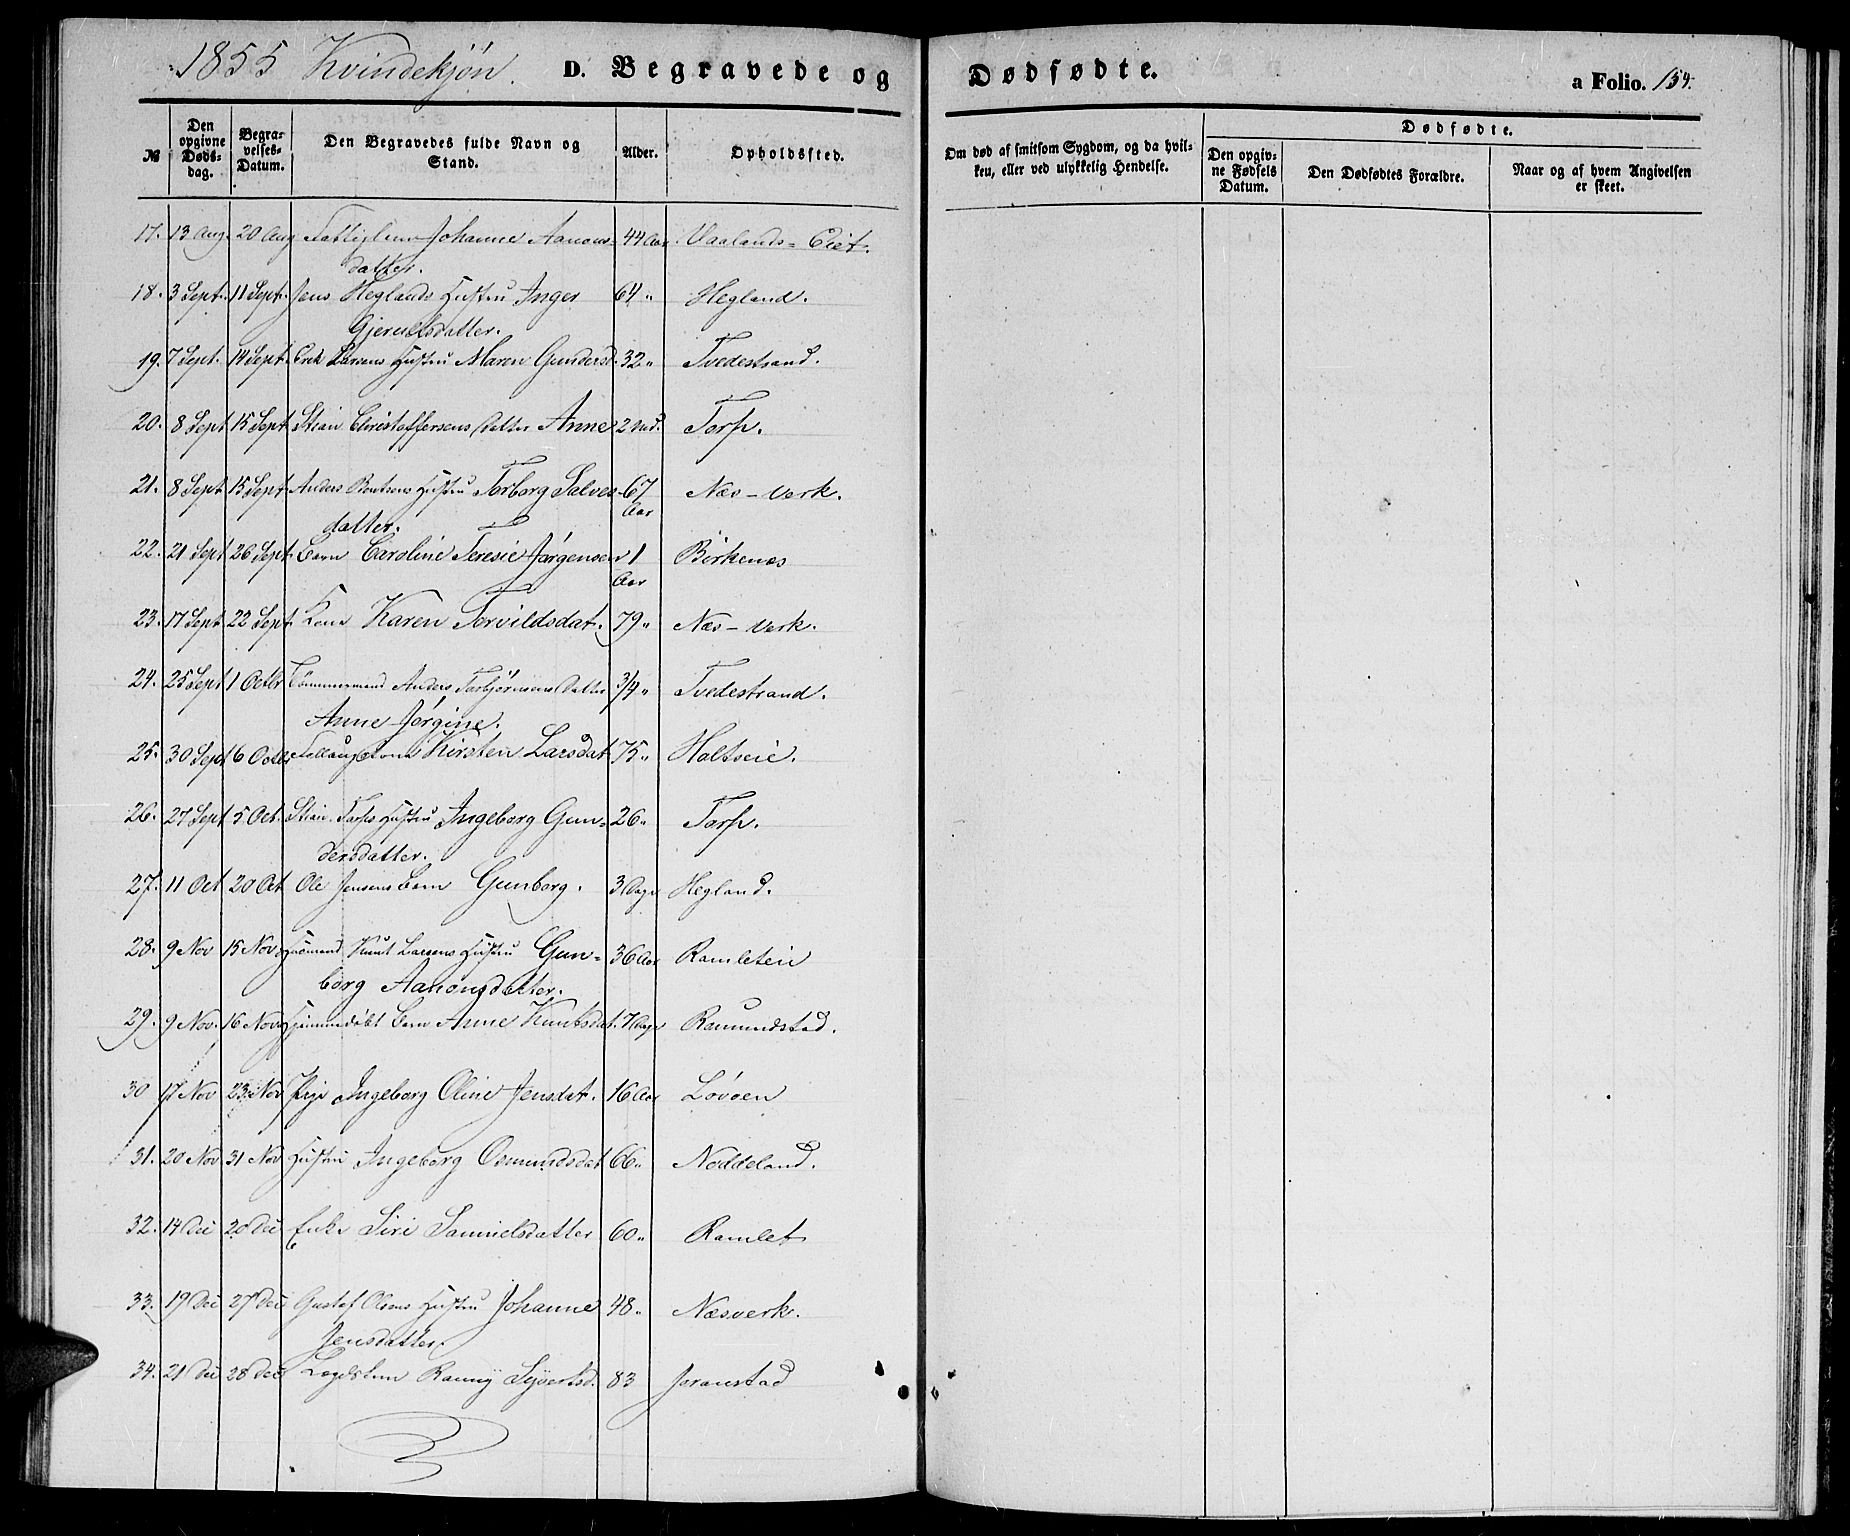 1855 Kvindekjön. D. Begravede og Dødfødte. a Folio. 154.
№ Den opgivne Døds-dag. Begra-velses-Datum. Den Begravedes fulde Navn og Stand. Alder. Opholdssted. Om død af smitsom Sygdom, og da hvil-ken, eller ved ulykkelig Hendelse. Dødfødte. Den opgiv-ne Fødsels Datum. Den Dødfødtes Forældre. Naar og af hvem Angivelsen er skeet.
17. 13 Aug. 20 Aug Fattiglem Johanne Aanons- 44 Aar Vaalands-Eiet.
datter.
18. 3 Sept. 11 Sept. Jens Heglands Hustru Inger 64 " Hegland.
Gjerulsdatter.
19. 7 Sept. 14 Sept. Erik Larsens Hustru Maren Gundersd. 32 " Tvedestrand.
20. 8 Sept 15 Sept Stian Christoffersens Datter Anne 2 Torp.
21. 8 Sept 15 Sept Anders Bentsens Hustru Torborg Salves- 67 Næs-Verk.
datter. Aar
22. 21 Sept 26 Sept. Barn Caroline Teresie Jørgensen 1 Børkenæs
Aar
23. 17 Sept 22 Sept. Kone Karen Torvildsdat. 79 " Næs-Verk.
24. 25 Sept 1 Octbr Tömmermand Anders Torbjörnsens Datter 3/4 " Tvedestrand.
Anne Jørgine.
25. 30 Sept 6 Octbr Kirsten Larsdat 75 " Holtseie.
26. 27 Sept 5 Oct. Stian Torps Hustru Ingeborg Gun- 26 " Torp.
dersdatter.
27. 11 Oct 20 Oct Ole Jensens Barn Gunborg. 3 Dage Hegland.
28. 9 Nov 15 Nov. Husmand Knut Larsens Hustru Gun- 36 Aar Ramleteie
borg Aanonsdatter.
29. 9 Nov. 16 Nov. Hjemmedøbt Barn Anne Knutsdat. 7 Dage Ramundstad.
30 17 Nov 23 Nov Pige Ingeborg Oline Jensdat. 16 Aar Løvøen
31. 20 Nov 31 Nov Hustru Ingeborg Osmundsdat 66 " Noddeland.
32. 14 Dec 20 Dec Enke Siri Samuelsdatter 60 " Ramlet
33. 19 Dec 27 Dec Gustaf Olsens Hustru Johanne 48 " Næsverk.
Jensdatter.
34. 21 Dec 28 Dec Lægdslem Ranny Syvertsd. 83 Joranstad